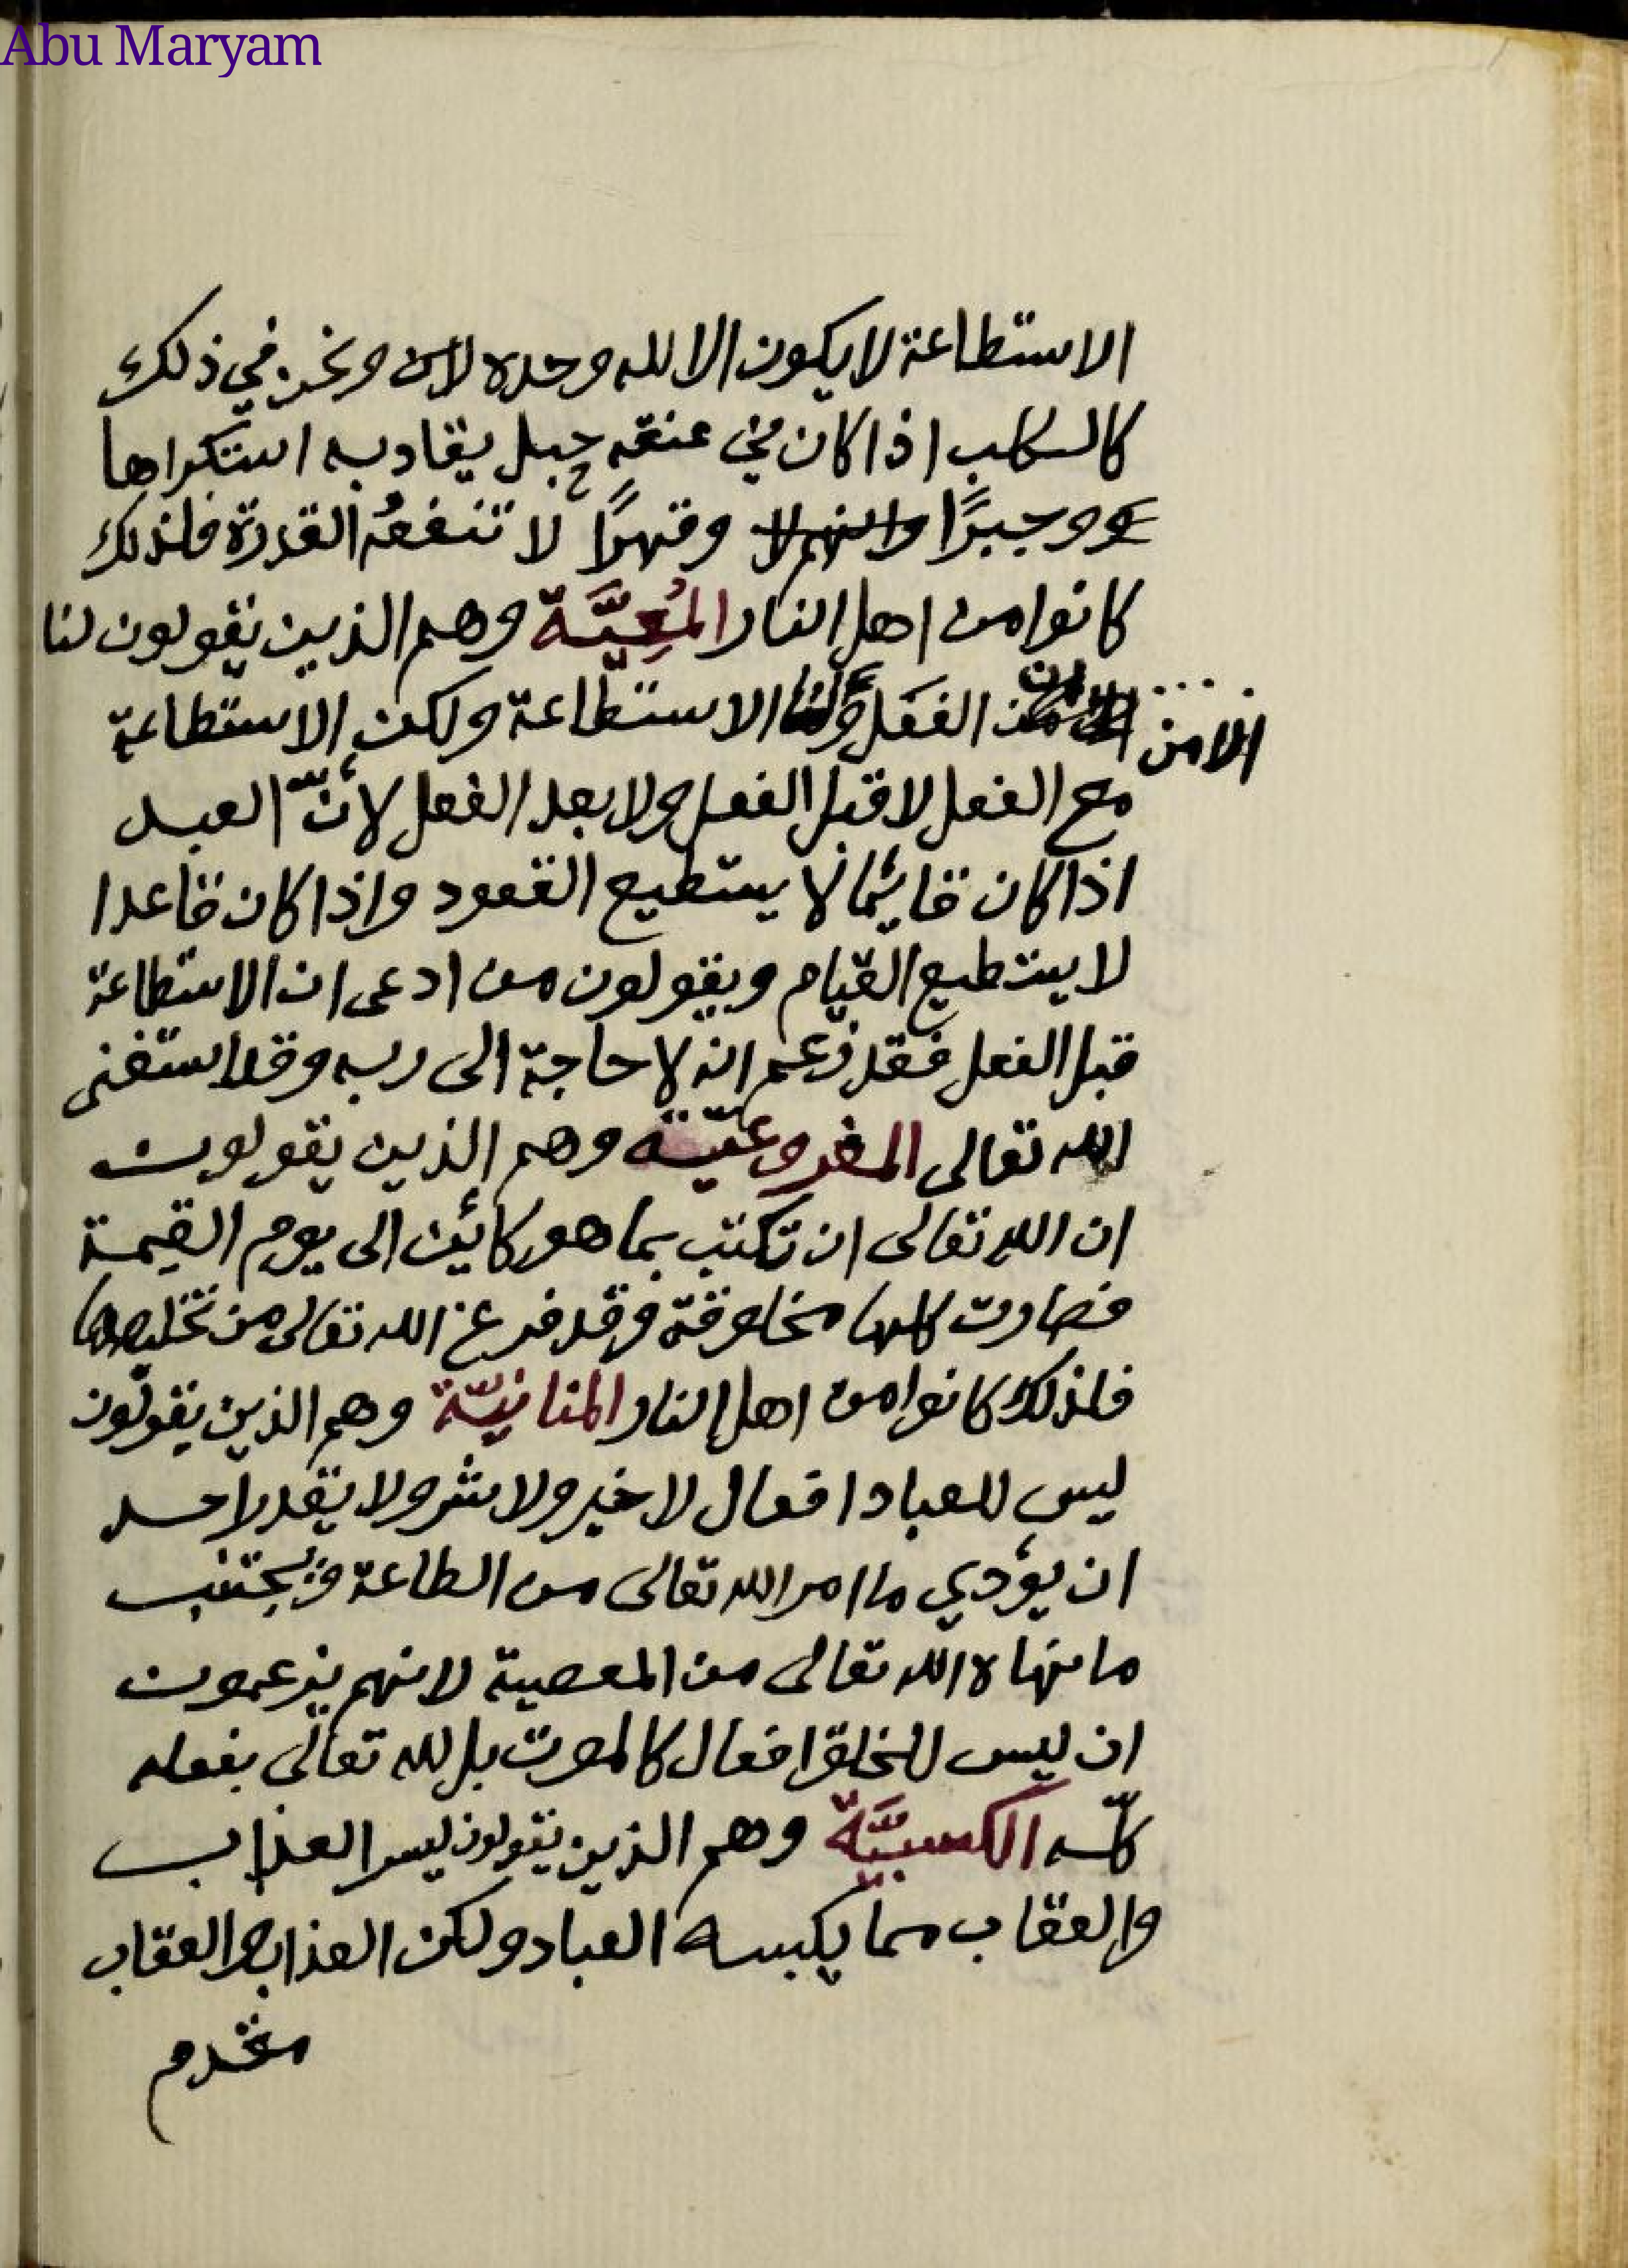 Abu Maryam
الاستطاعة لا يكون الا لله وحده لان ونحن في ذلك
كالكلب اذا كان في عنقه حبل يقاد به استكراها
وجبرًا وقهرًا لا تنفعُه القدرة فلذلك
كانوا من اهل النار المُعِيَّة وهم الذين يقولون لنا
الامن
الفعل الاستطاعة ولكن الاستطاعة
مع الفعل لا قبل الفعل ولا بعد الفعل لأنّ العبد
اذا كان قائما لا يستطيع القعود واذا كان قاعدا
لا يستطيع القيام ويقولون من ادعى ان الاستطاعة
قبل الفعل فقد زعم انه لا حاجة الى ربه وقد استغنى
الله تعالى المفروغيّة وهم الذين يقولون
ان الله تعالى ان تكتب بما هو كائن الى يوم القيمة
فصارت كلها مخلوقة وقد فرغ الله تعالى من تخليصها
فلذلك كانوا من اهل النار المنانيّة وهم الذين يقولون
ليس للعباد افعال لا خير ولا شر ولا يقدر احد
ان يؤدي ما امر الله تعالى من الطاعة ويجتنب
ما نهاه الله تعالى من المعصية لانهم يزعمون
ان ليس للخلق افعال كالموت بل لله تعالى بفعله
كلّه الكسبيَّة وهم الذين يقولون ليس العذاب
والعقاب مما يكبسه العباد ولكن العذاب والعقاب